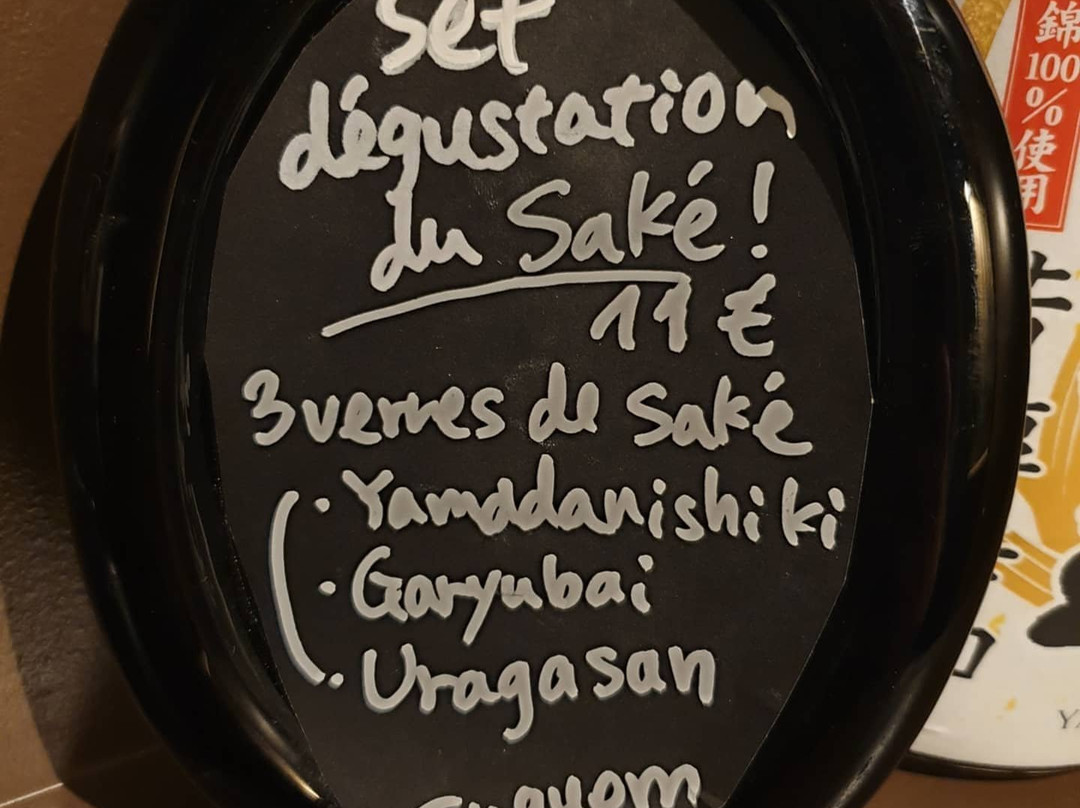 set
dégustation
du Saké!
11 €
3 verres de Saké
· Yamadanishiki
· Garyubai
· Uragasan
錦
100
%
使
用